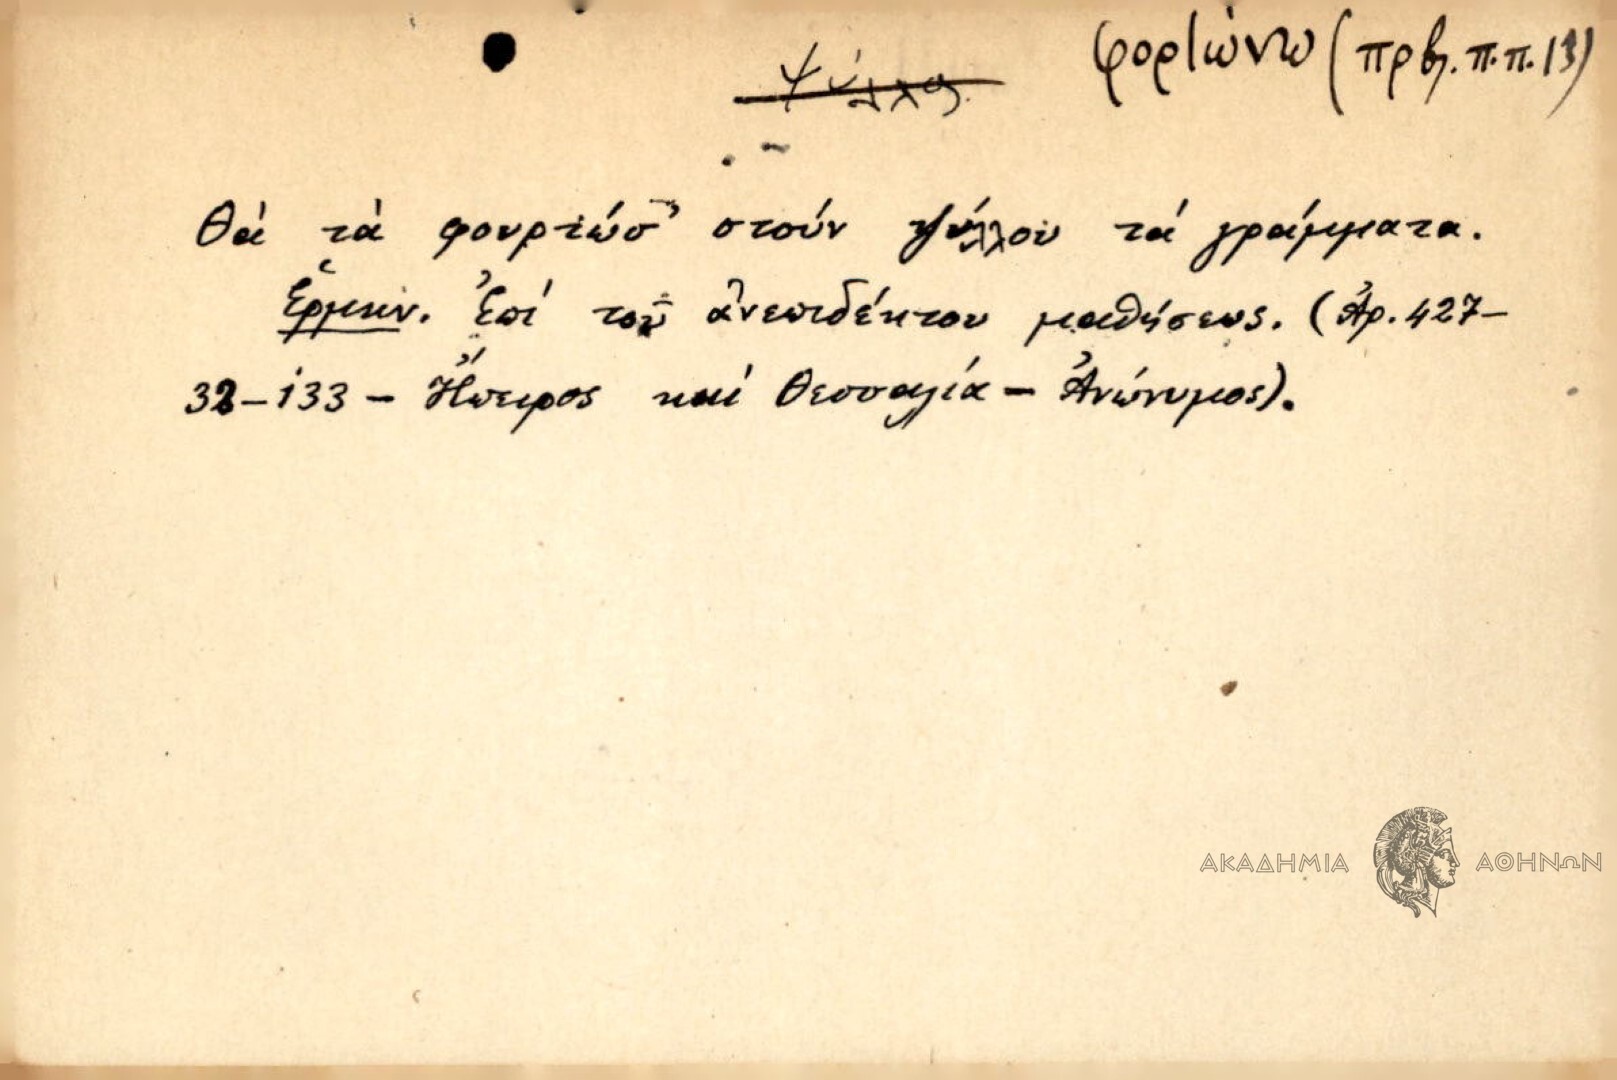 ψύλλος
φορτώνω (πρβ. π.π. 13)
Θά τά φουρτώσ' στούν ψύλλου τά γράμματα.
Ἑρμην. Ἐπί τοῦ ἀνεπιδέκτου μαθήσεως. (Ἀρ. 427-
32-133 - Ἤπειρος καί Θεσσαλία - Ἀνώνυμος).
ΑΚΑΔΗΜΙΑ ΑΘΗΝΩΝ